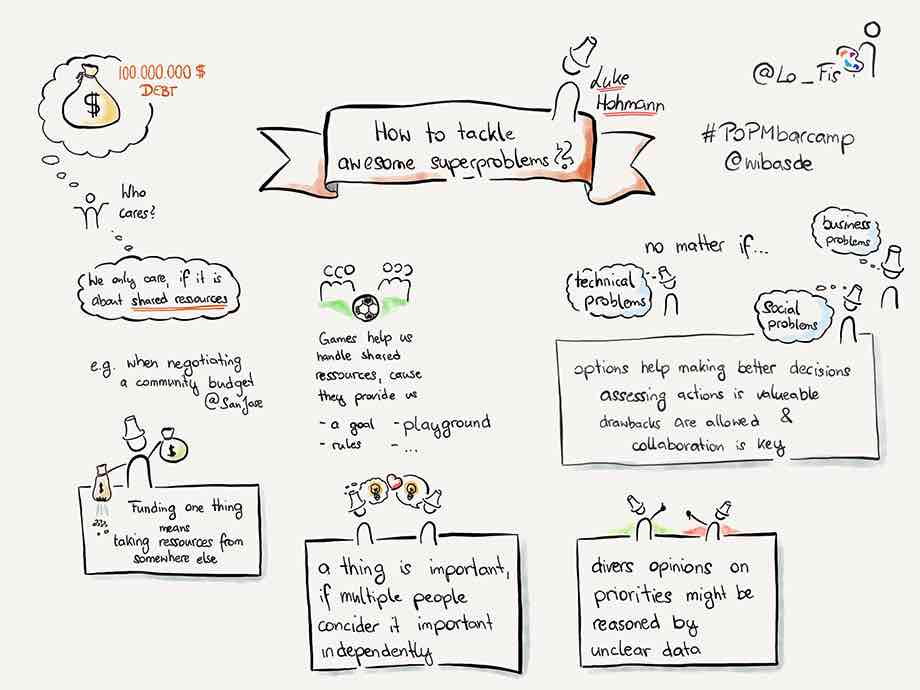 100.000.000 $
DEBT
$
Who
cares?
We only care, if it is
about shared resources
e.g. when negotiating
a community budget
@SanJose
$
$
Funding one thing
means
taking ressources from
somewhere else
Luke
Hohmann
How to tackle
awesome superproblems??
@Lo_Fis
#PoPMbarcamp
@wibasde
Games help us
handle shared
ressources, cause
they provide us
- a goal - playground
- rules - ...
a thing is important,
if multiple people
concider it important
independently
no matter if...
business
problems
technical
problems
social
problems
options help making better decisions
assessing actions is valueable
drawbacks are allowed &
collaboration is key
divers opinions on
priorities might be
reasoned by
unclear data